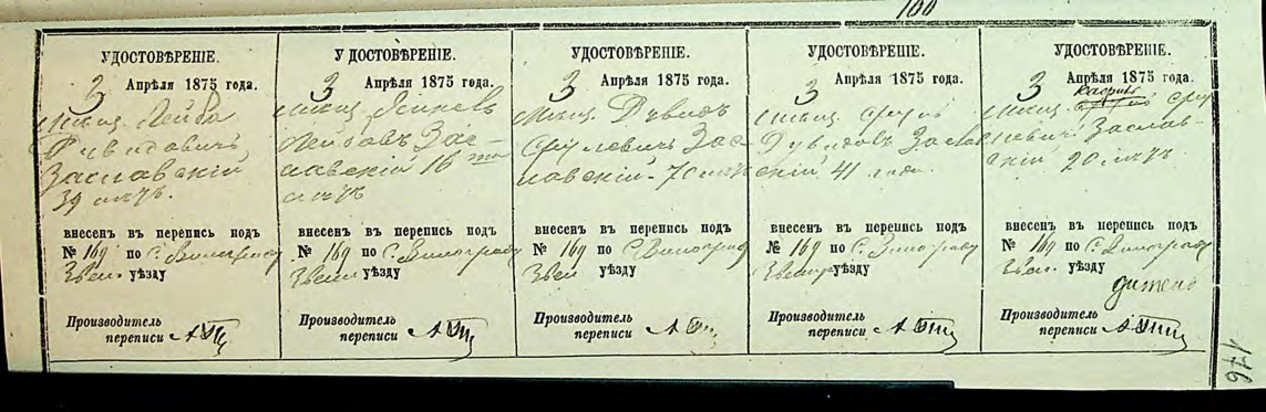 100
УДОСТОВѢРЕНІЕ.
3 Апрѣля 1875 года.
Мѣщ. Лейба
Дувидовичъ
Заславскій
39 лѣтъ.
внесенъ въ перепись подъ
№ 169 по С. Винограду
Звен. уѣзду
Производитель
переписи
УДОСТОВѢРЕНІЕ.
3 Апрѣля 1875 года.
Мѣщ.
Лейбовъ Зас-
лавскій 16 ти
лѣтъ
внесенъ въ перепись подъ
№ 169 по С. Винограду
Звен. уѣзду
Производитель
переписи
УДОСТОВѢРЕНІЕ.
3 Апрѣля 1875 года.
Мѣщ. Дувидъ
Срулевичъ Зас-
лавскій 70 лѣтъ
внесенъ въ перепись подъ
№ 169 по С. Винограду
Звен уѣзду
Производитель
переписи
УДОСТОВѢРЕНІЕ.
3 Апрѣля 1875 года.
Мѣщ. Сруль
Дувидовъ Заслав
скій 41 года.
внесенъ въ перепись подъ
№ 169 по С. Винограду
уѣзду
Производитель
переписи
УДОСТОВѢРЕНІЕ.
3 Апрѣля 1875 года.
Мѣщ. Сру
левичъ Заслав-
скій 20 лѣтъ
внесенъ въ перепись подъ
№ 169 по С. Винограду
Звен. уѣзду
Производитель
переписи
176